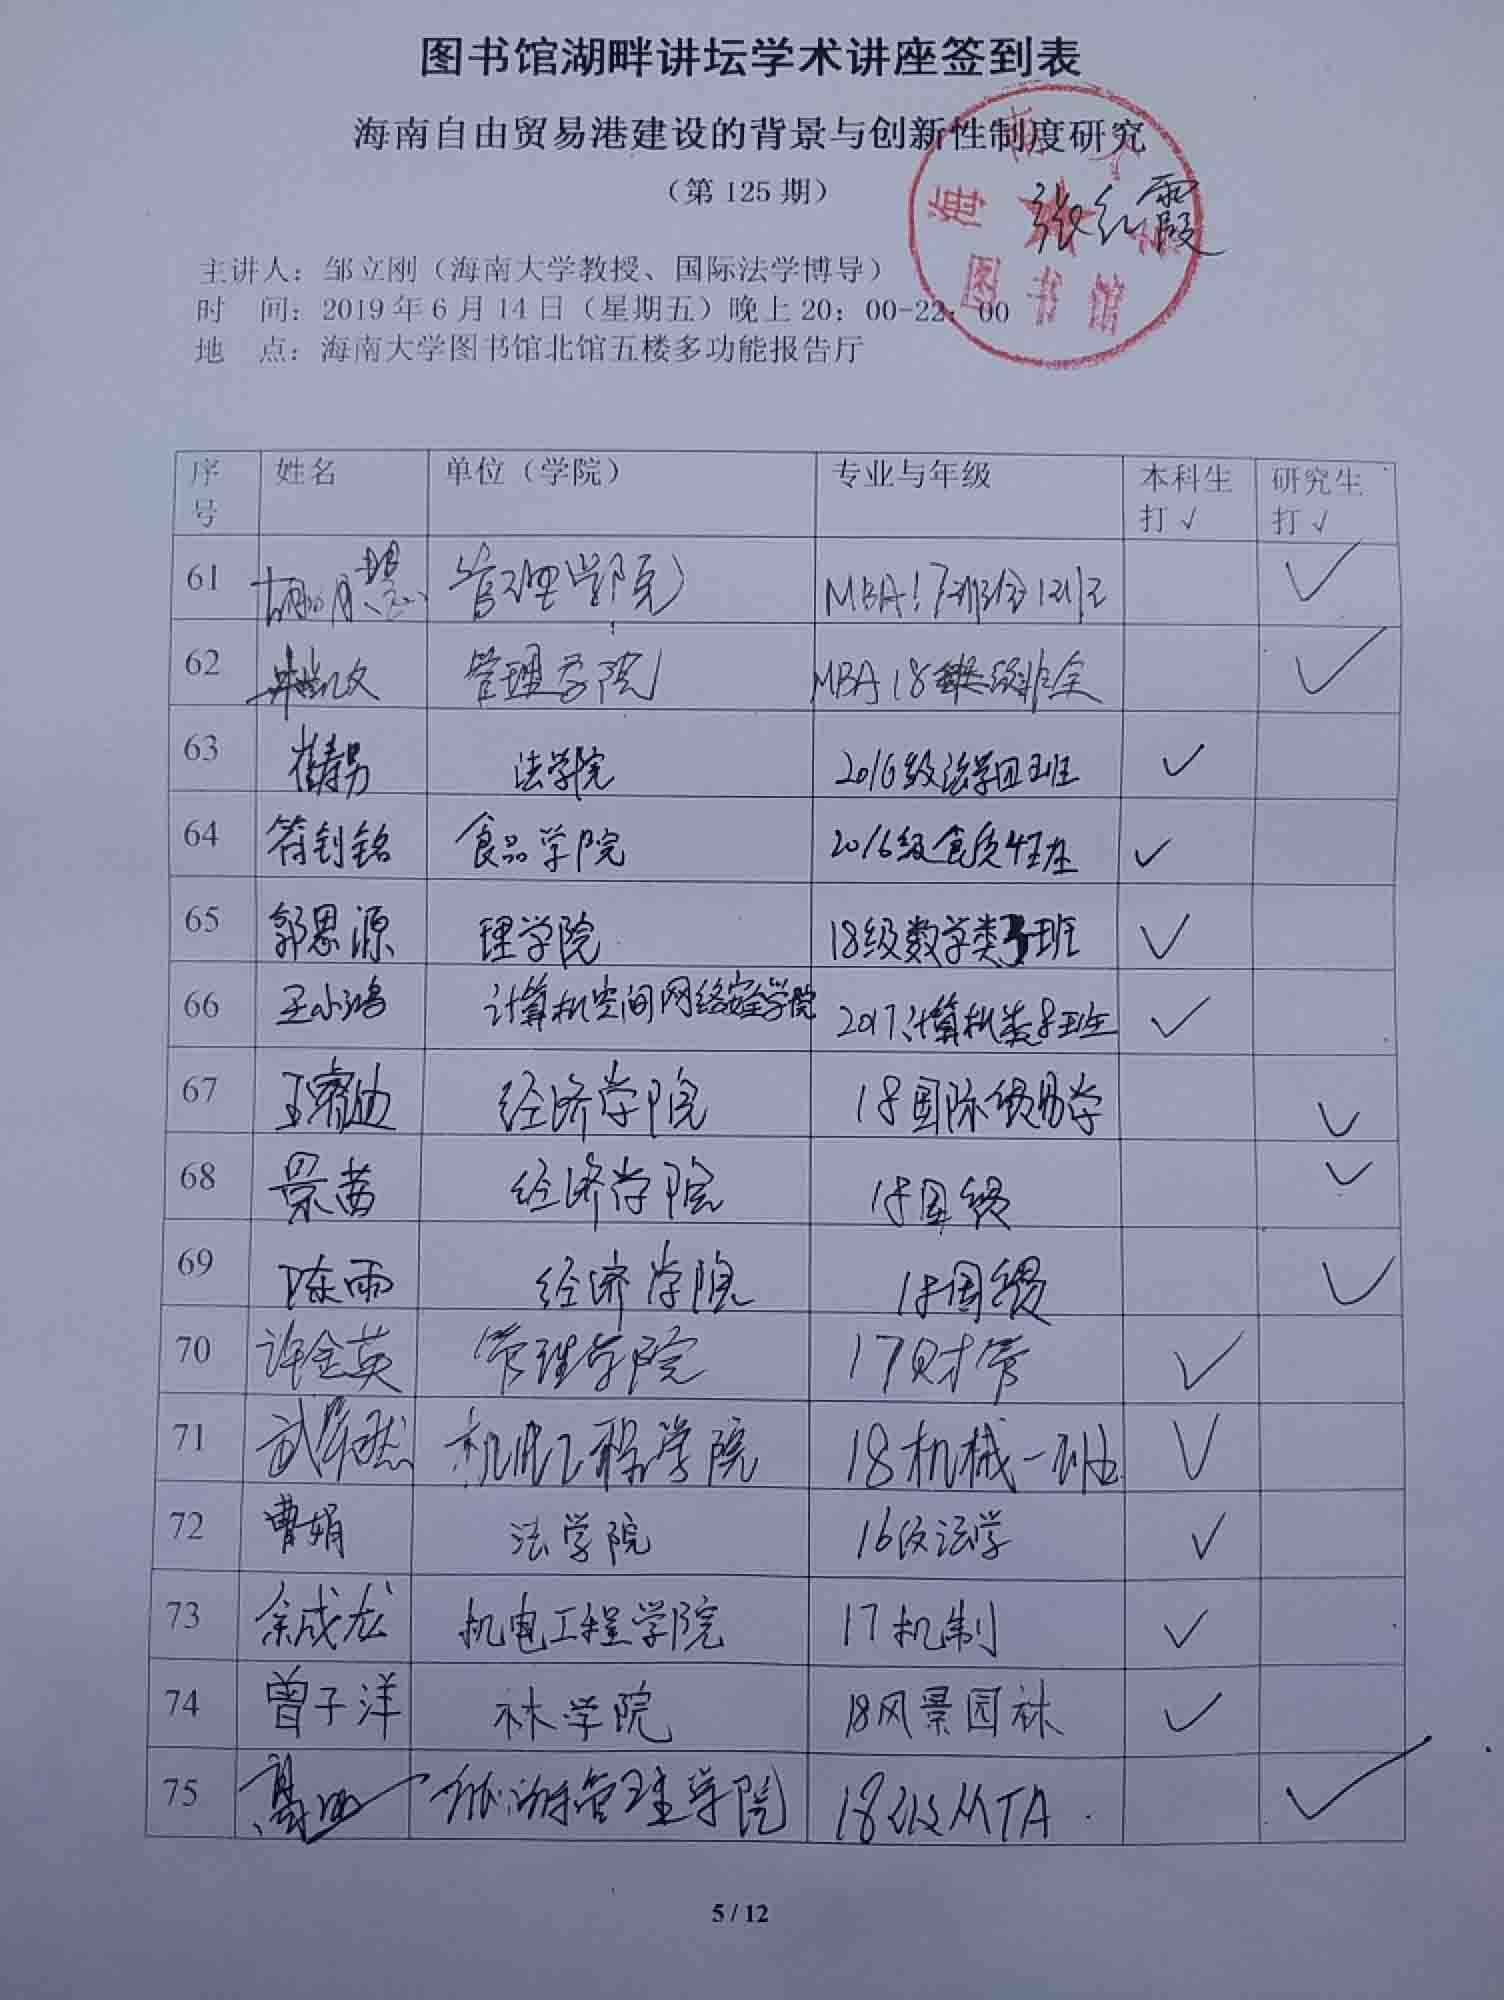 图书馆湖畔讲坛学术讲座签到表
海南自由贸易港建设的背景与创新性制度研究
（第 125 期）
海南大
图书馆
张红霞
主讲人：邹立刚（海南大学教授、国际法学博导）
时 间：2019 年 6 月 14 日（星期五）晚上 20：00-22：00
地 点：海南大学图书馆北馆五楼多功能报告厅
序号 姓名 单位（学院） 专业与年级 本科生打√ 研究生打√
61 管理学院 MBA √
62 管理学院 MBA 18 非全 √
63 法学院 2016级法学四班 √
64 符钊铭 食品学院 2016级食质4班 √
65 郭思源 理学院 18级数学类 班 √
66 王小鸿 计算机空间网络安全学院 2017计算机类8班 √
67 王睿迪 经济学院 18国际贸易学 √
68 景茜 经济学院 18国贸 √
69 陈雨 经济学院 18国贸 √
70 许金英 管理学院 17财管 √
71 机电工程学院 18机械一班 √
72 曹娟 法学院 16级法学 √
73 余成龙 机电工程学院 17机制 √
74 曾子洋 林学院 18风景园林 √
75 旅游管理学院 18级MTA √
5 / 12